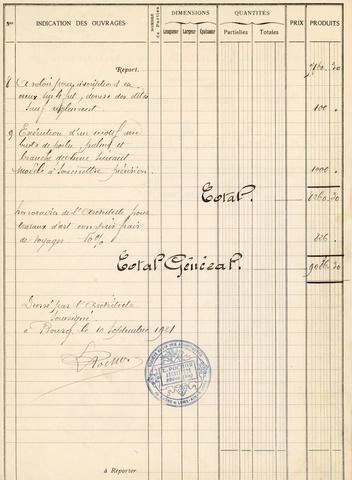 Nos INDICATION DES OUVRAGES NOMBRE de Parties DIMENSIONS Longueur Largeur Épaisseur QUANTITÉS Partielles Totales PRIX PRODUITS
Report. 7160.30
8. A valoir pour inscriptions en
creux sur le , dorure des dites
sauf règlement. 100 .
9. Exécution d'un motif une
de poilu, palme et
branche de chêne suivant
modèle à soumettre prévision. 1000 .
Total. 8260.30
honoraires de l'Architecte pour
travaux d'art compris frais
de voyages 10% 826 .
Total Général. 9086.30
Dressé par l'Architecte
soussigné.
à Bourg, le 10 Septembre 1921
à Reporter